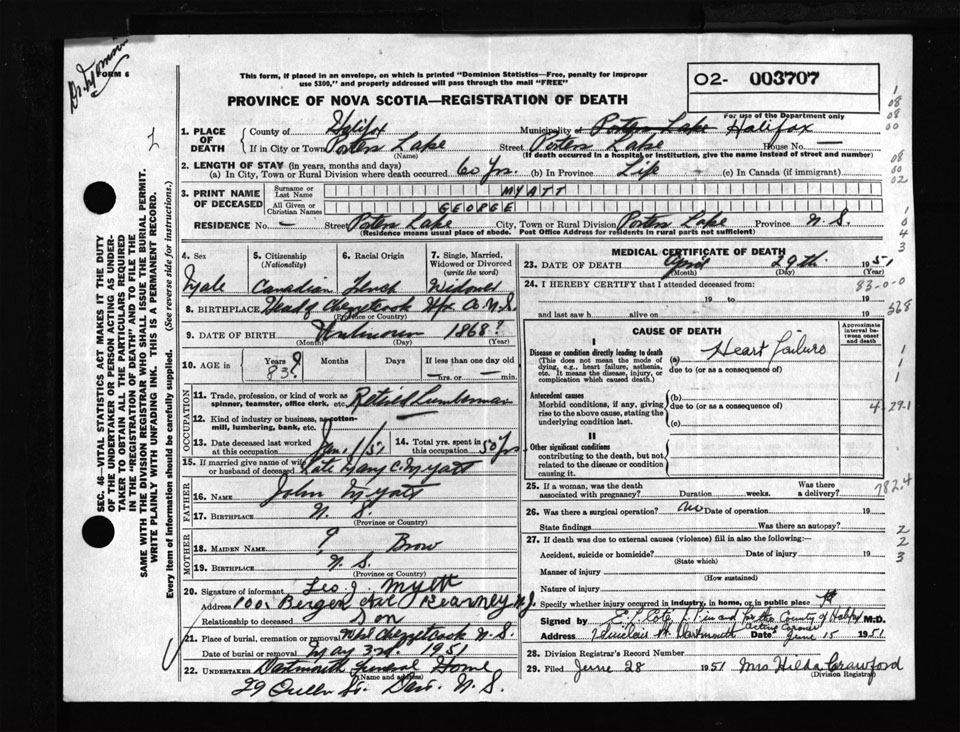 FORM 6
This form, if placed in an envelope, on which is printed "Dominion Statistics—Free, penalty for improper
use $300," and properly addressed will pass through the mail "FREE"
O2- 003707
PROVINCE OF NOVA SCOTIA—REGISTRATION OF DEATH
For use of the Department only
1. PLACE OF DEATH County of Halifax Municipality of Porters Lake Halifax
If in City or Town Porters Lake Street Porters Lake House No. —
(Name) (If death occurred in a hospital or institution, give the name instead of street and number)
2. LENGTH OF STAY (in years, months and days)
(a) In City, Town or Rural Division where death occurred 60 Yrs. (b) In Province Life (c) In Canada (if immigrant)
3. PRINT NAME OF DECEASED Surname or Last Name MYATT
All Given or Christian Names GEORGE
RESIDENCE No. — Street Porters Lake City, Town or Rural Division Porters Lake Province N. S.
(Residence means usual place of abode. Post Office Address for residents in rural parts not sufficient)
4. Sex 5. Citizenship (Nationality) 6. Racial Origin 7. Single, Married, Widowed or Divorced (write the word)
Male Canadian French Widower
8. BIRTHPLACE Head of Chezzetcook Hfx. Co. N.S.
(Province or Country)
9. DATE OF BIRTH Unknown 1868?
(Month) (Day) (Year)
10. AGE in Years Months Days If less than one day
83? — hrs. or — min.
11. Trade, profession, or kind of work as spinner, teamster, office clerk, etc. Retired Lumberman
12. Kind of industry or business, as cotton-mill, lumbering, bank, etc.
13. Date deceased last worked at this occupation Jan. 1/51 14. Total yrs. spent in this occupation 50 Yrs
15. If married give name of wife or husband of deceased Late Mary C. Myatt
FATHER
16. NAME John Myatt
17. BIRTHPLACE N. S.
(Province or Country)
MOTHER
18. MAIDEN NAME ? Brow
19. BIRTHPLACE N. S.
(Province or Country)
20. Signature of informant Leo J. Myatt
Address 100 Bergen Ave Kearney N.J.
Relationship to deceased Son
21. Place of burial, cremation or removal Chezzetcook N. S.
Date of burial or removal May 3rd. 1951
22. UNDERTAKER Dartmouth Funeral Home
(Name and address)
29 Queen St. Dart. N. S.
MEDICAL CERTIFICATE OF DEATH
23. DATE OF DEATH April 29th 1951
(Month) (Day) (Year)
24. I HEREBY CERTIFY that I attended deceased from:
19 to 19
and last saw h alive on 19
CAUSE OF DEATH
Approximate interval between onset and death
I
Disease or condition directly leading to death (a) Heart Failure
(This does not mean the mode of dying, e.g., heart failure, asthenia, etc. It means the disease, injury, or complication which caused death.)
due to (or as a consequence of)
Antecedent causes (b)
Morbid conditions, if any, giving rise to the above cause, stating the underlying condition last.
due to (or as a consequence of)
(c)
II
Other significant conditions contributing to the death, but not related to the disease or condition causing it.
25. If a woman, was the death associated with pregnancy? Duration weeks. Was there a delivery?
26. Was there a surgical operation? No Date of operation 19
State findings Was there an autopsy?
27. If death was due to external causes (violence) fill in also the following:—
Accident, suicide or homicide? Date of injury 19
(State which)
Manner of injury
(How sustained)
Nature of injury
Specify whether injury occurred in industry, in home, or in public place
Signed by in and for the County of Halifax M.D.
Acting Coroner
Address Dartmouth Date June 15 1951
28. Division Registrar's Record Number
29. Filed June 28 1951 Mrs Hilda Crawford
(Division Registrar)
83-0-0
568
4-29-1
782.4
SEC. 46—VITAL STATISTICS ACT MAKES IT THE DUTY
OF THE UNDERTAKER OR PERSON ACTING AS UNDERTAKER TO OBTAIN ALL THE PARTICULARS REQUIRED
IN THE "REGISTRATION OF DEATH" AND TO FILE THE
SAME WITH THE DIVISION REGISTRAR WHO SHALL ISSUE THE BURIAL PERMIT.
WRITE PLAINLY WITH UNFADING INK. THIS IS A PERMANENT RECORD.
Every item of information should be carefully supplied. (See reverse side for instructions.)